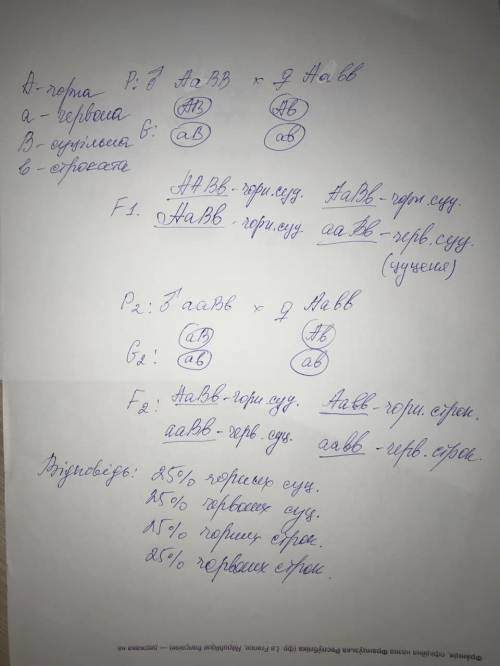 А-чорна
а - червона
В-суцільна
в-строката
P: ♂ АаВВ × ♀ Аавв
G: АВ аВ Ав ав
F1. ААВв-чорн.суц. АаВв-чорн.суц.
АаВв-чорн.суц. ааВв-черв.суц.
(цуценя)
P2: ♂ ааВв × ♀ Аавв
G2: аВ ав Ав ав
F2: АаВв-чорн.суц. Аавв-чорн.строк.
ааВв-черв.суц. аавв-черв.строк.
Відповідь: 25% чорних суц.
25% червоних суц.
25% чорних строк.
25% червоних строк.
Франція, офіційна назва Французька Республіка (фр. La France, République française) — держава на